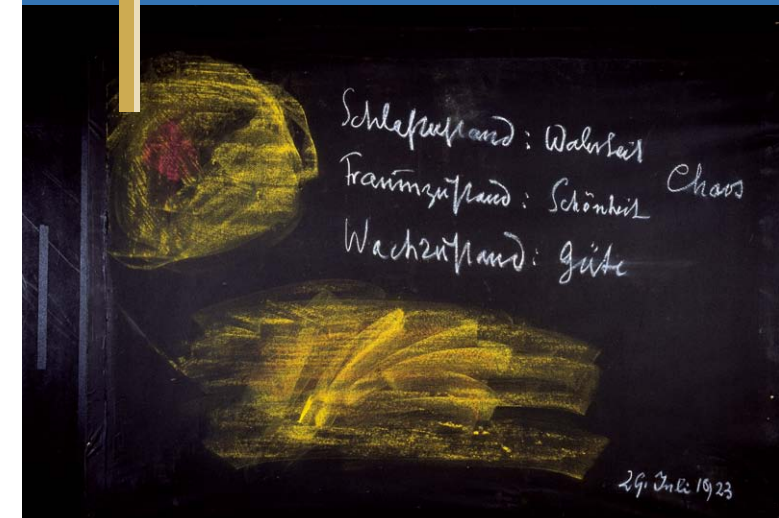 Schlafzustand: Wahrheit
Traumzustand: Schönheit Chaos
Wachzustand: Güte
29. Juli 1923